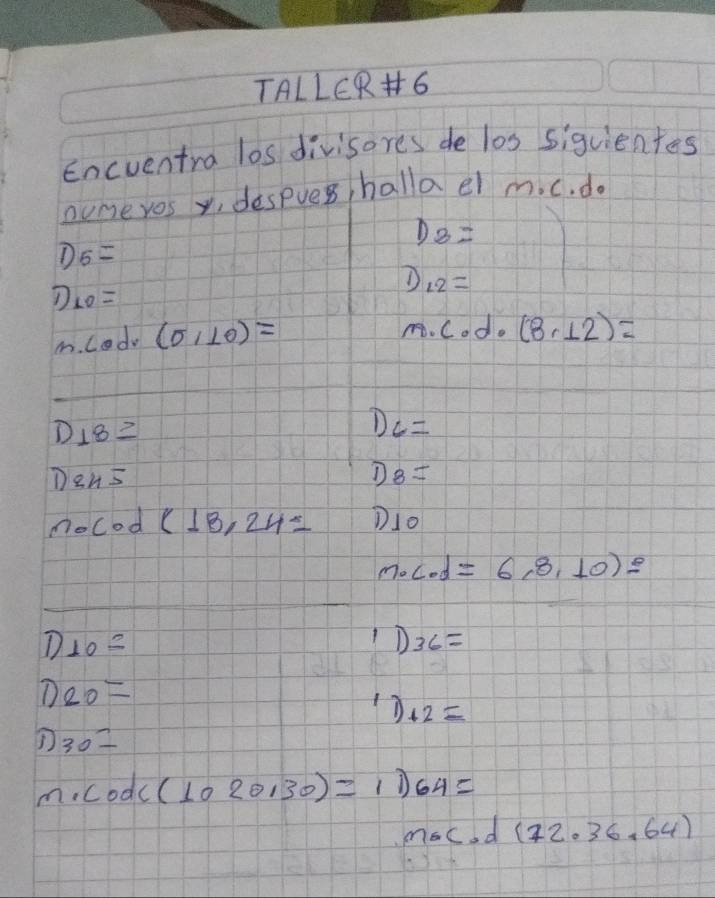 TALLER #6
Encuentra los divisores de los siguientes
numeros y, despues, halla el m.c.d.
D5=
D10=
m.c.d. (5,10)=
D8=
D12=
m.c.d. (8,12)=
D18=
D24=
m.c.d (18,24=
D6=
D8=
D10
m.c.d= 6,8,10)=
D10=
D20=
D30=
m.c.d((10 20,30)=
D36=
D12=
D64=
m.c.d (72.36.64)